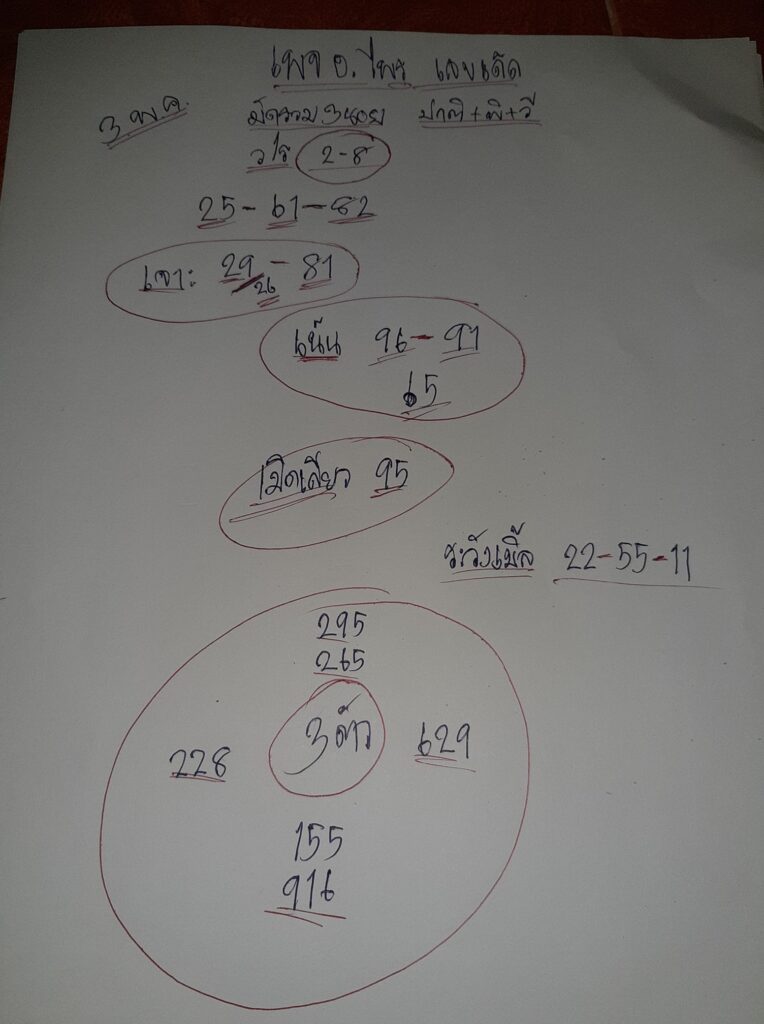 เพจ อ.ไพร เลขเด็ด
3 พ.ค. มัดรวม 3หนอย ปาติ+พิ+วี
วิ่ง 2-8
25-61-82
เจาะ 29-81
26
เน้น 96-91
65
เม็ดเสียว 95
ระวังเบิ้ล 22-55-11
295
265
228 3ตัว 629
155
916